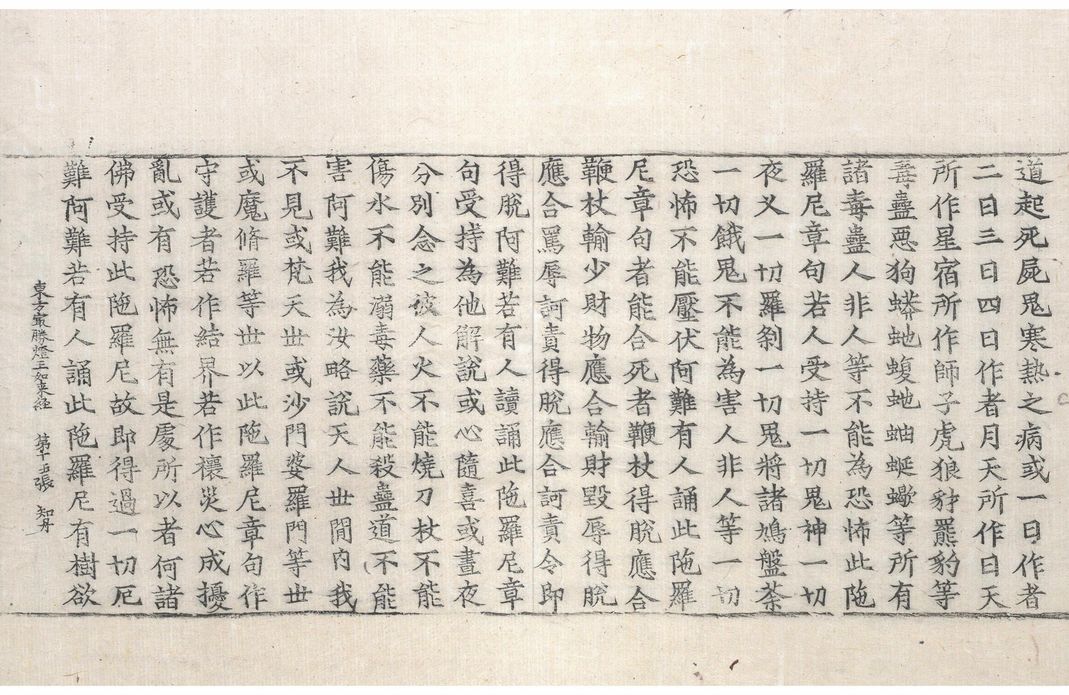 道起死屍鬼寒熱之病或一日作者
二日三日四日作者月天所作日天
所作星宿所作師子虎狼豺羆豹等
毒蠱惡狗蟒虵蝮虵蚰蜒蠍等所有
諸毒蠱人非人等不能為恐怖此陁
羅尼章句若人受持一切鬼神一切
夜叉一切羅剎一切鬼將諸鳩盤荼
一切餓鬼不能為害人非人等一切
恐怖不能壓伏阿難有人誦此陁羅
尼章句者能合死者鞭杖得脫應合
鞭杖輸少財物應合輸財毀辱得脫
應合罵辱訶責得脫應合訶責令即
得脫阿難若有人讀誦此陁羅尼章
句受持為他解說或心隨喜或晝夜
分別念之彼人火不能燒刀杖不能
傷水不能溺毒藥不能殺蠱道不能
害阿難我為汝略說天人世間內我
不見或梵天世或沙門婆羅門等世
或魔脩羅等世以此陁羅尼章句作
守護者若作結界若作禳災心成擾
亂或有恐怖無有是處所以者何諸
佛受持此陁羅尼故即得過一切厄
難阿難若有人誦此陁羅尼有樹欲
東方最勝燈王如來經 第十五張 知丹